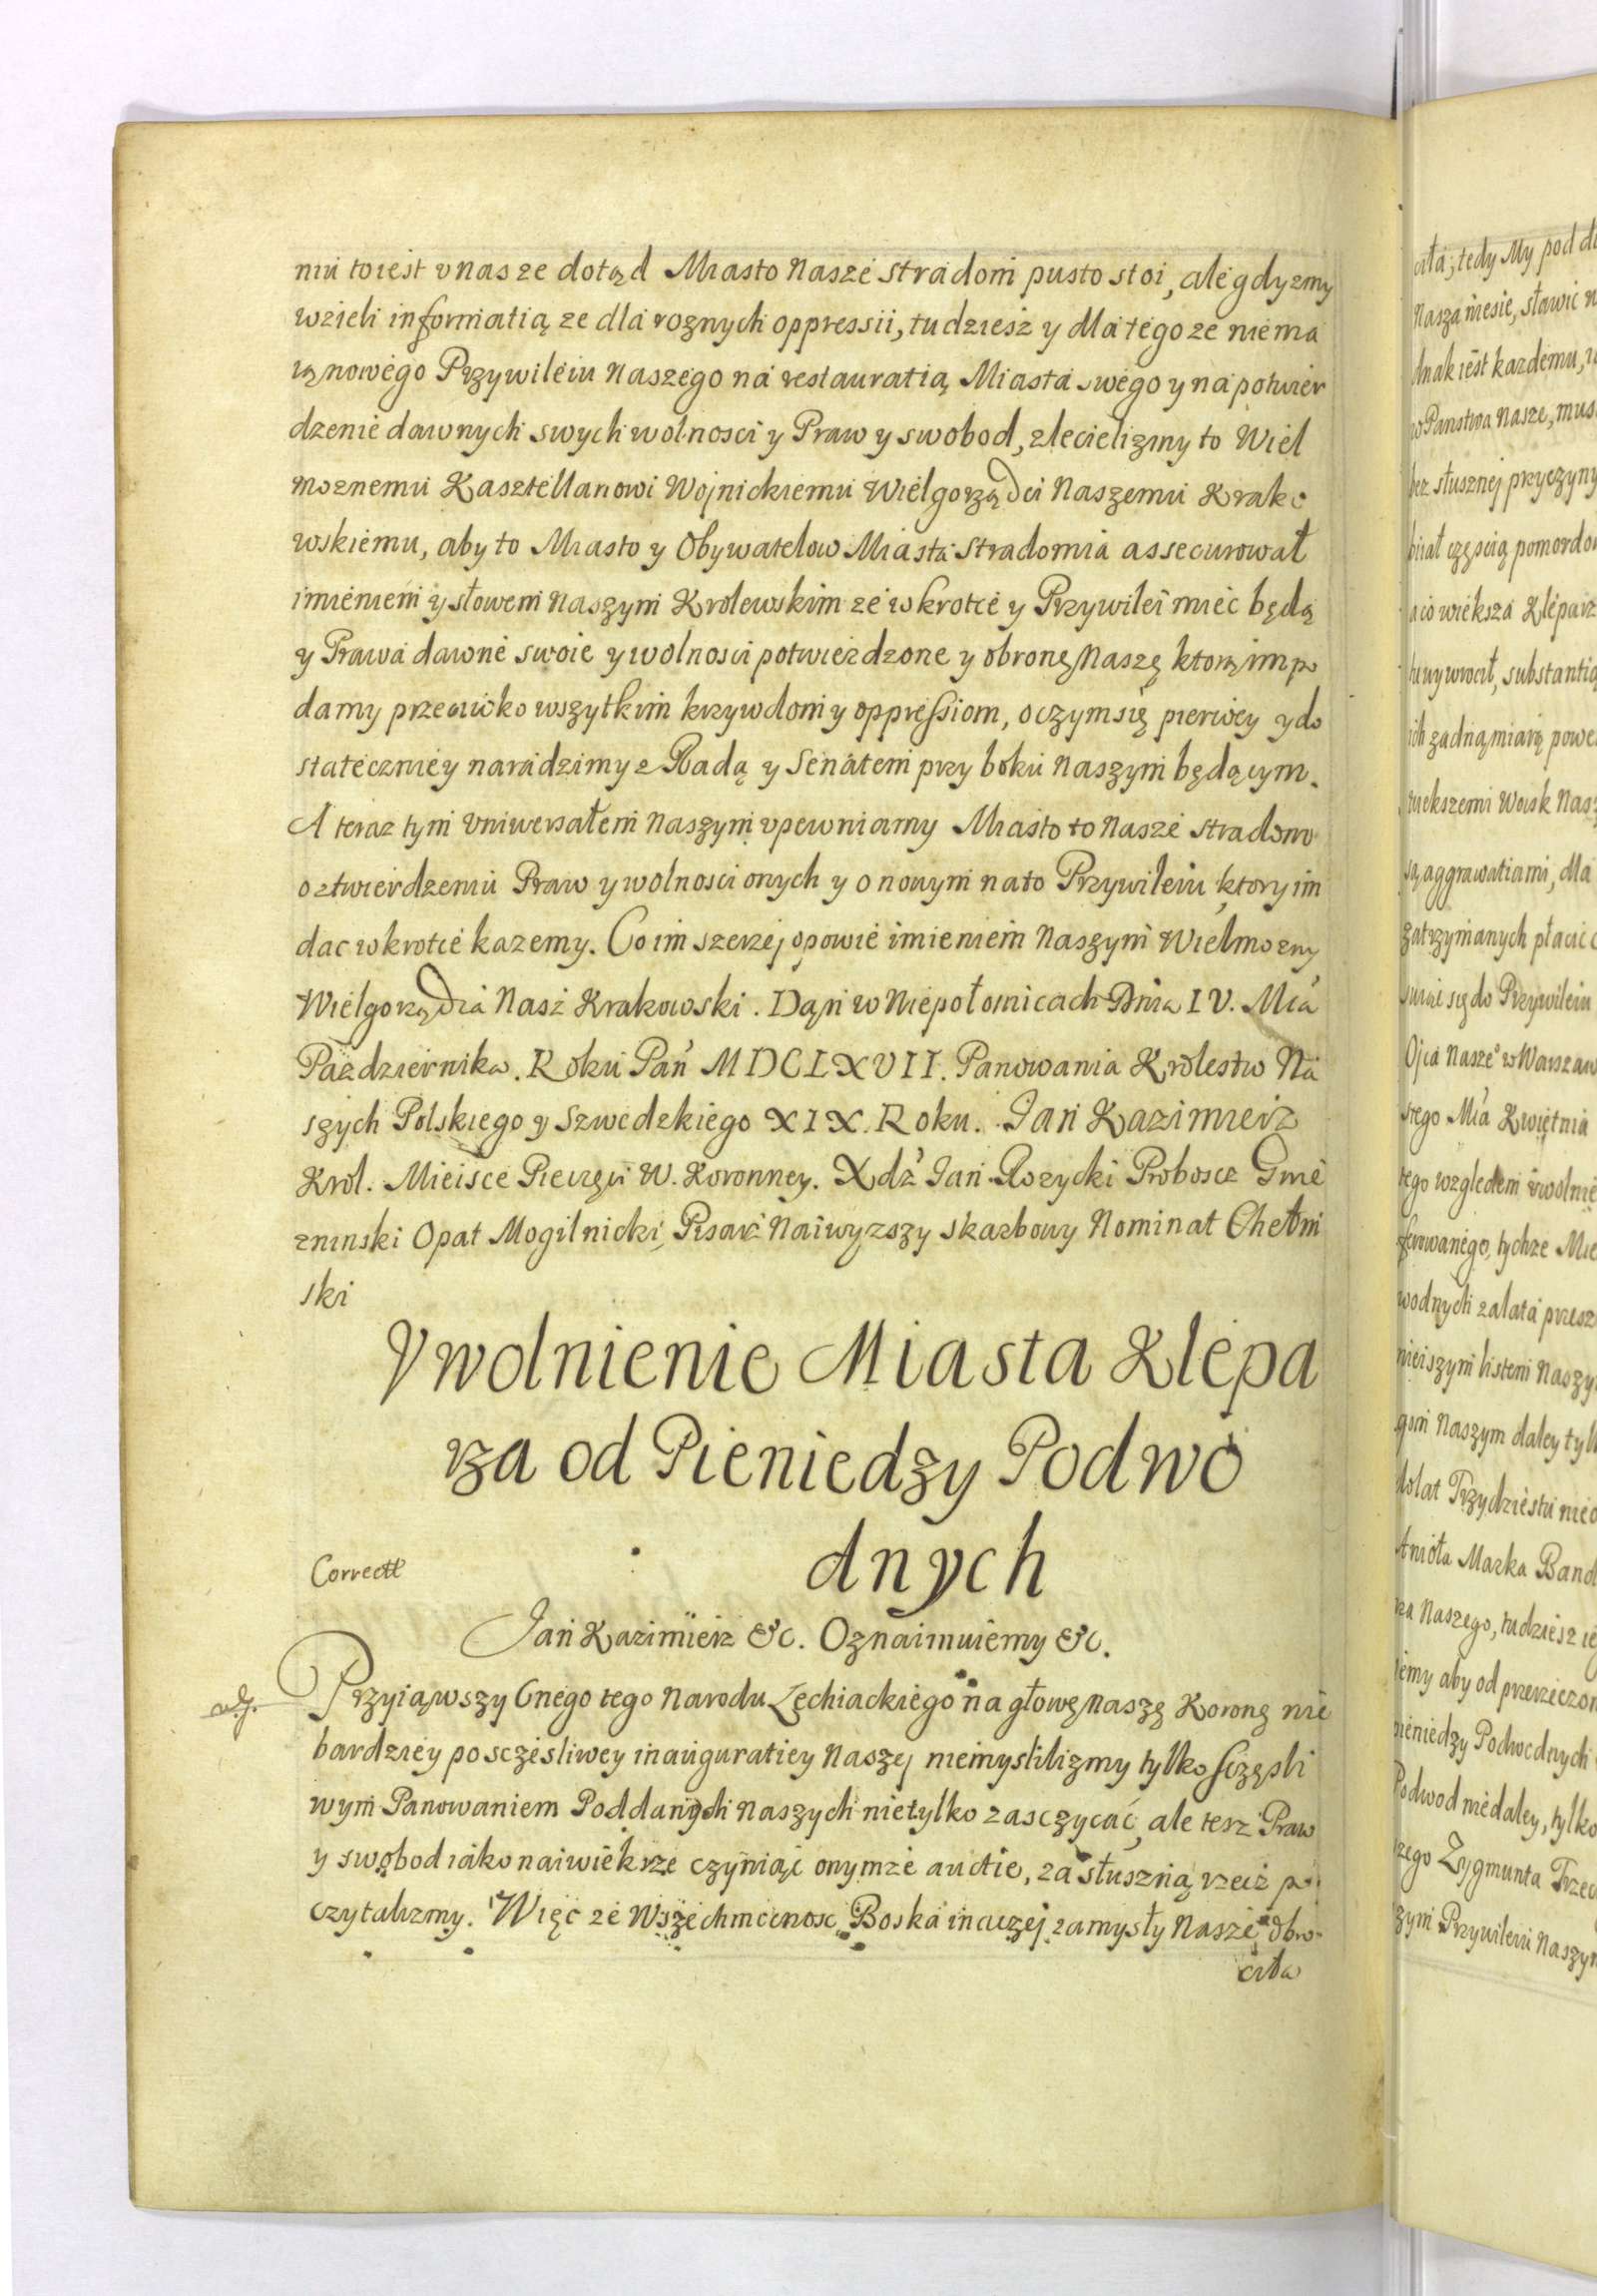 niu toiest v nas ze dotąd Miasto Nasze Stradom pusto stoi, ale gdyzmy
wzieli informatią ze dla roznych oppressii, tudziesz y dla tego ze niema
ią nowego Przywileiu Naszego na restauratią Miasta swego y na potwier
dzenie dawnych swych wolnosci y Praw y swobod, zlecielizmy to Wiel
moznemu Kasztellanowi Wojnickiemu Wielgorządci Naszemu Krako
wskiemu, aby to Miasto y Obywatelow Miasta Stradomia assecurował
imieniem y słowem Naszym Krolewskim ze wkrotce y Przywilei miec będą
y Prawa dawne swoie y wolnosci potwierdzone y obronę Naszę ktorą im po
damy przeciwko wszytkim krzywdom y oppressiom, o czym się pierwey y do
stateczniey naradzimy z Radą y Senatem przy boku Naszym będącym.
A teraz tym Vniwersałem Naszym vpewniamy Miasto to Nasze Stradom
o ztwierdzeniu Praw y wolnosci onych y o nowym na to Przywileiu, ktory im
dac wkrotce kazemy. Co im szerzej opowie imieniem Naszym Wielmozny
Wielgorządcia Nasz Krakowski. Dąn w Niepołomicach Dnia IV. Mca
Pazdziernika. Roku Pań MDCLXVII. Panowania Krolestw Na
szych Polskiego y Szwedzkiego XIX. Roku. Jan Kazimierz
Krol. Mieisce Pieczęci W. Koronney. Xdz Jan Rozycki Proboscz Gnie
zninski Opat Mogilnicki, Pisarz Naiwyzszy Skarbowy Nominat Chełmi
ski
Vwolnienie Miasta Klepa
rza od Pieniedzy Podwo
dnych
Correcte
Jan Kazimierz &c. Oznaimuiemy &c.
Przyiąwszy Cnego tego Narodu Lechiackiego na głowę Naszę Koronę nie
bardziey po sczesliwey inauguratiey Naszej niemyslilizmy tylko sczęsli
wym Panowaniem Poddanych Naszych nietylko zasczycać, ale tesz Praw
y swobod iako naiwieksze czyniąc onymze auctie, za słuszną rzecz po
czytalizmy. Więc ze Wszechmocnosc Boska inaczej zamysły Nasze obro-
ciła
ciła; tedy My pod
Nasza niesie, stawić
dnak iest kazdemu,
Panstwa Nasze,
bez słusznej przyczyny
birał częscią
a co wieksza Klepar
wywrocił, substantią
ich zadną miarą
wiekszemi Woisk
są aggrawatiami, dla
zatrzymanych płacic
się do Przywileiu
Ojca Nasze° w Warszaw
Mca Kwietnia
tego względem vwolnie
tychze
wodnych za lata
nieiszym listem Naszy
Naszym daley
dolat Trzydziestu
Anioła Marka Band
Naszego, tudziesz
iemy aby od przerzeczon
pieniedzy Podwodnych
Podwod niedaley, tylko
szego Zygmunta Trzec
szym Przywileiu Naszym